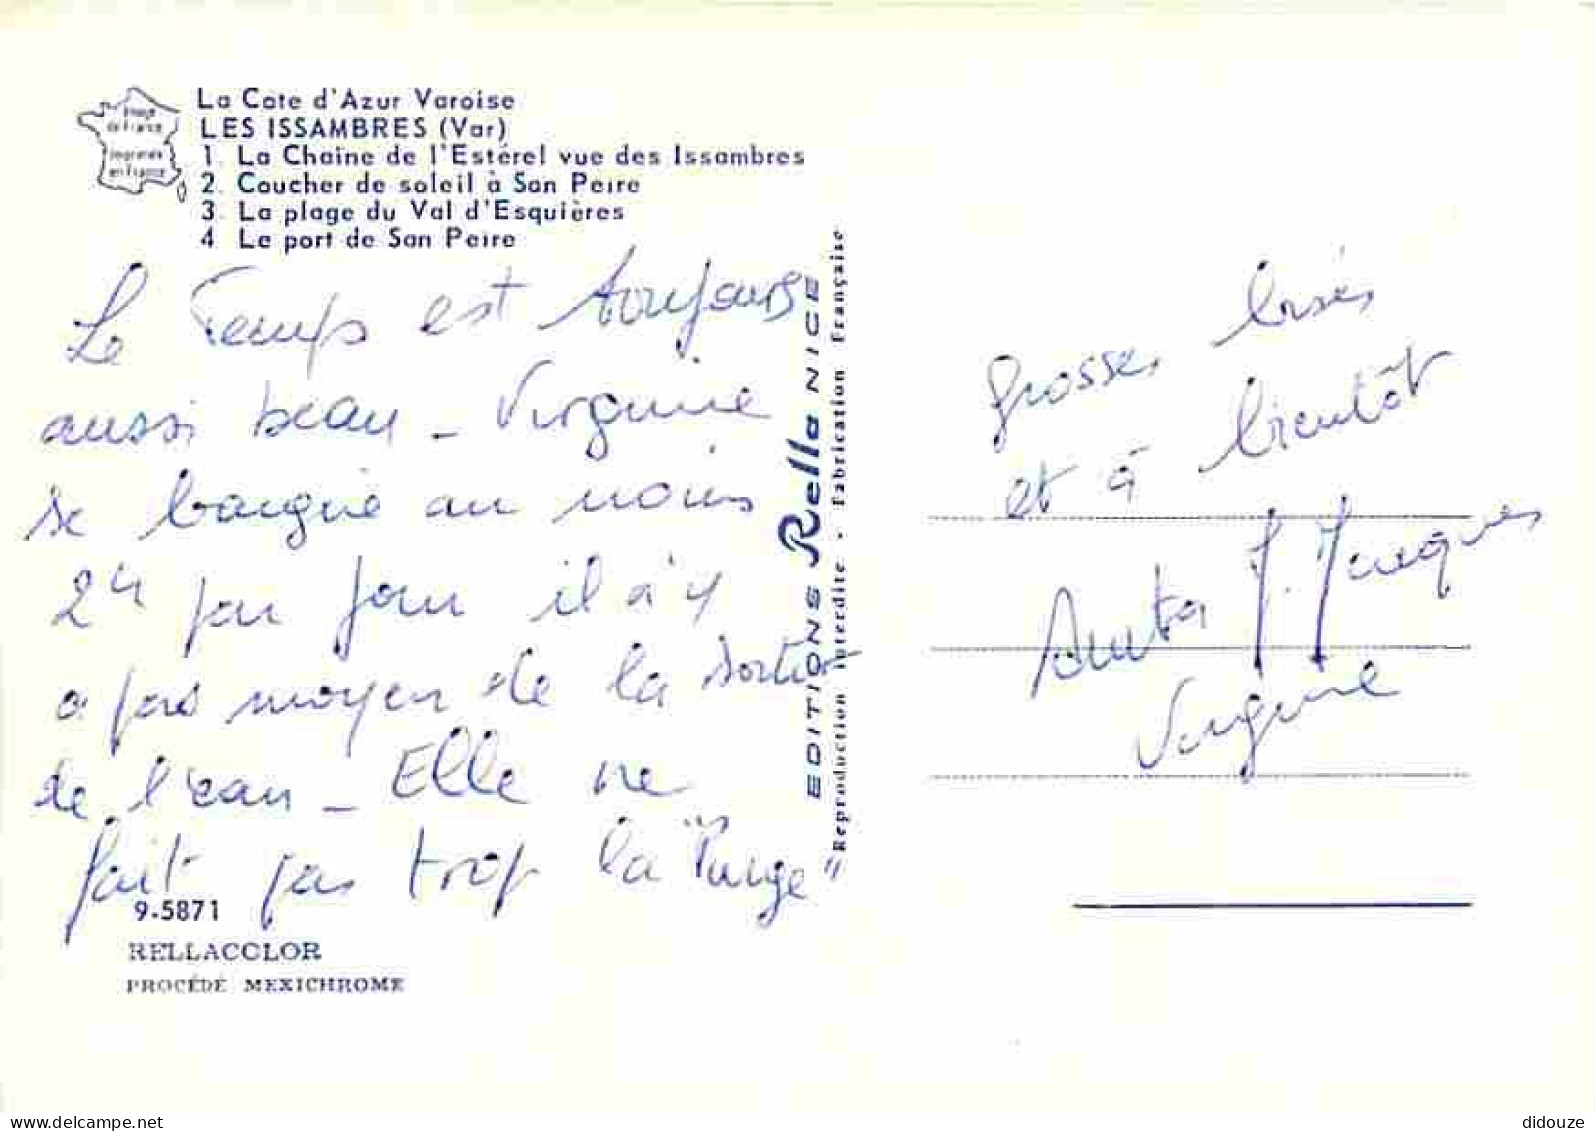 Image
de France
Imprimée
en France
La Cote d'Azur Varoise
LES ISSAMBRES (Var)
1. La Chaîne de l'Estérel vue des Issambres
2. Coucher de soleil à San Peire
3. La plage du Val d'Esquières
4 Le port de San Peire
Le Temps est toujours
aussi beau - Virginie
se baigne au moins
2h par jour il n'y
a pas moyen de la sortir
de l'eau - Elle ne
fait pas trop la "Purge"
9-5871
RELLACOLOR
PROCÉDÉ MEXICHROME
EDITIONS Rella NICE
"Reproduction interdite - Fabrication Française
Grosses bises
et à bientôt
J. Jacques
Virginie
delcampe.net
didouze